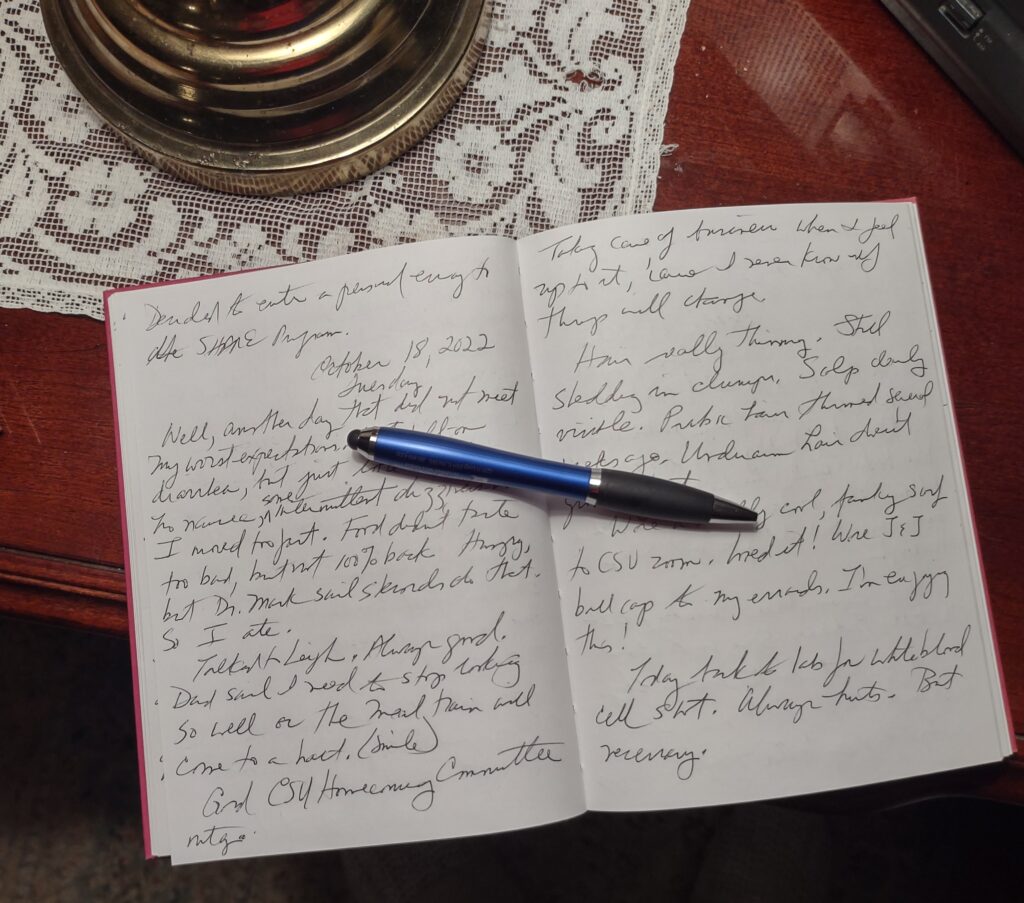 Decided to enter a personal essay to
the SHARE Program.
October 18, 2022
Tuesday
Well, another day that did not meet
my worst expectations.
diarrhea, but just
no nausea, some intermittent dizziness
I moved too fast. Food didn't taste
too bad, but not 100% back. Hungry,
but Dr. Mark said steroids do that.
So I ate.
Talked to Leigh. Always good.
Dad said I need to stop looking
so well or the meal train will
come to a halt. (Smile)
Good CSU Homecoming Committee
mtg.
Taking care of business when I feel
up to it, 'cause I never know if
things will change
Hair really thinning. Still
shedding in clumps. Scalp clearly
visible. Pubic hair thinned several
weeks ago. Underarm hair doesn't
Wore cool, funky scarf
to CSU zoom. Loved it! Wore J&J
ball cap to my errands. I'm enjoying
this!
Today trek to lab for white blood
cell shot. Always hurts. But
necessary.